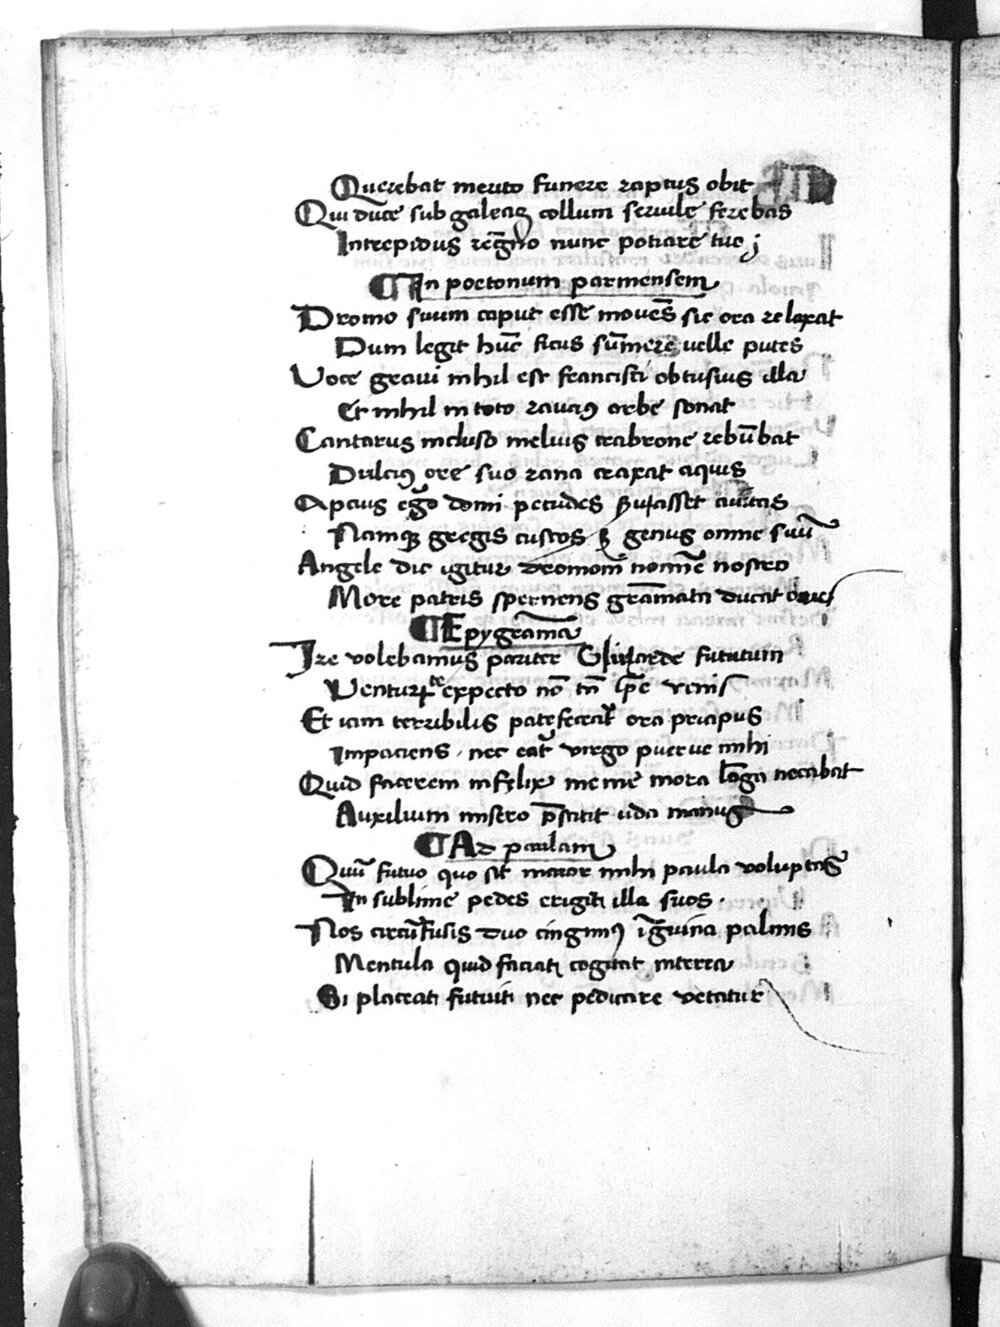 Querebat merito funere raptus obit
Qui duce sub galeaz collum seruile ferebas
Intrepidus regno nunc potiare tuo
In poetonum parmensem
Dromo suum caput esse mouens sic ora relaxat
Dum legit hunc ficus sumere uelle putes
Voce graui nihil est francisci obtusius illa
Et nihil in toto raucius orbe sonat
Cantarus incluso melius crabrone rebumbat
Dulcius ore suo rana craxat aquis
Apcius ergo domi pecudes seruasset auitas
Namque gregis custos genus omne suum
Angele dic igitur dromom nomine nostro
More patris spernens gramata ducat oues
Epygrama
Ire volebamus pariter fututum
Venturum te expecto non tamen ipse venis
Et iam terribilis patefecerat ora priapus
Impaciens nec erat virgo puer ue mihi
Quid facerem infelix me me mora longa necabat
Auxilium misero prestitit uda manus
Ad paulam
Quum futuo quo sit maior mihi paula voluptas
In sublime pedes erigit illa suos
Nos circumfusis duo cingimus inguina palmis
Mentula quid faciat cogitat interea
Si placeat futuit nec pedicare vetatur